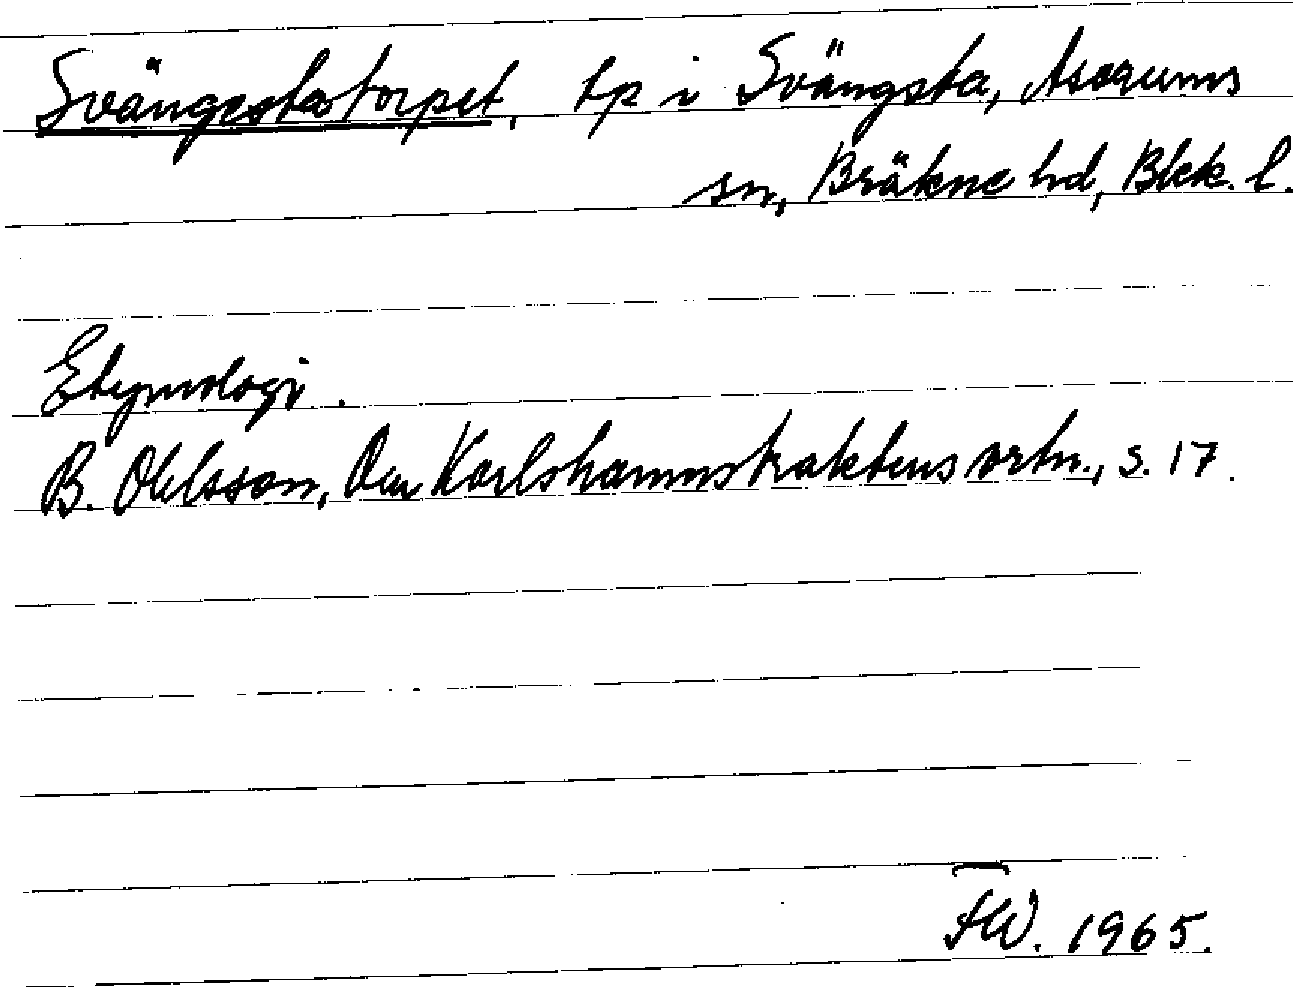 Svängestatorpet, tp i Svängsta, Asarums
sn, Bräkne hd, Blek. l.
Etymologi.
B. Ohlsson, Om Karlshamnstraktens ortn., s. 17.
1965.